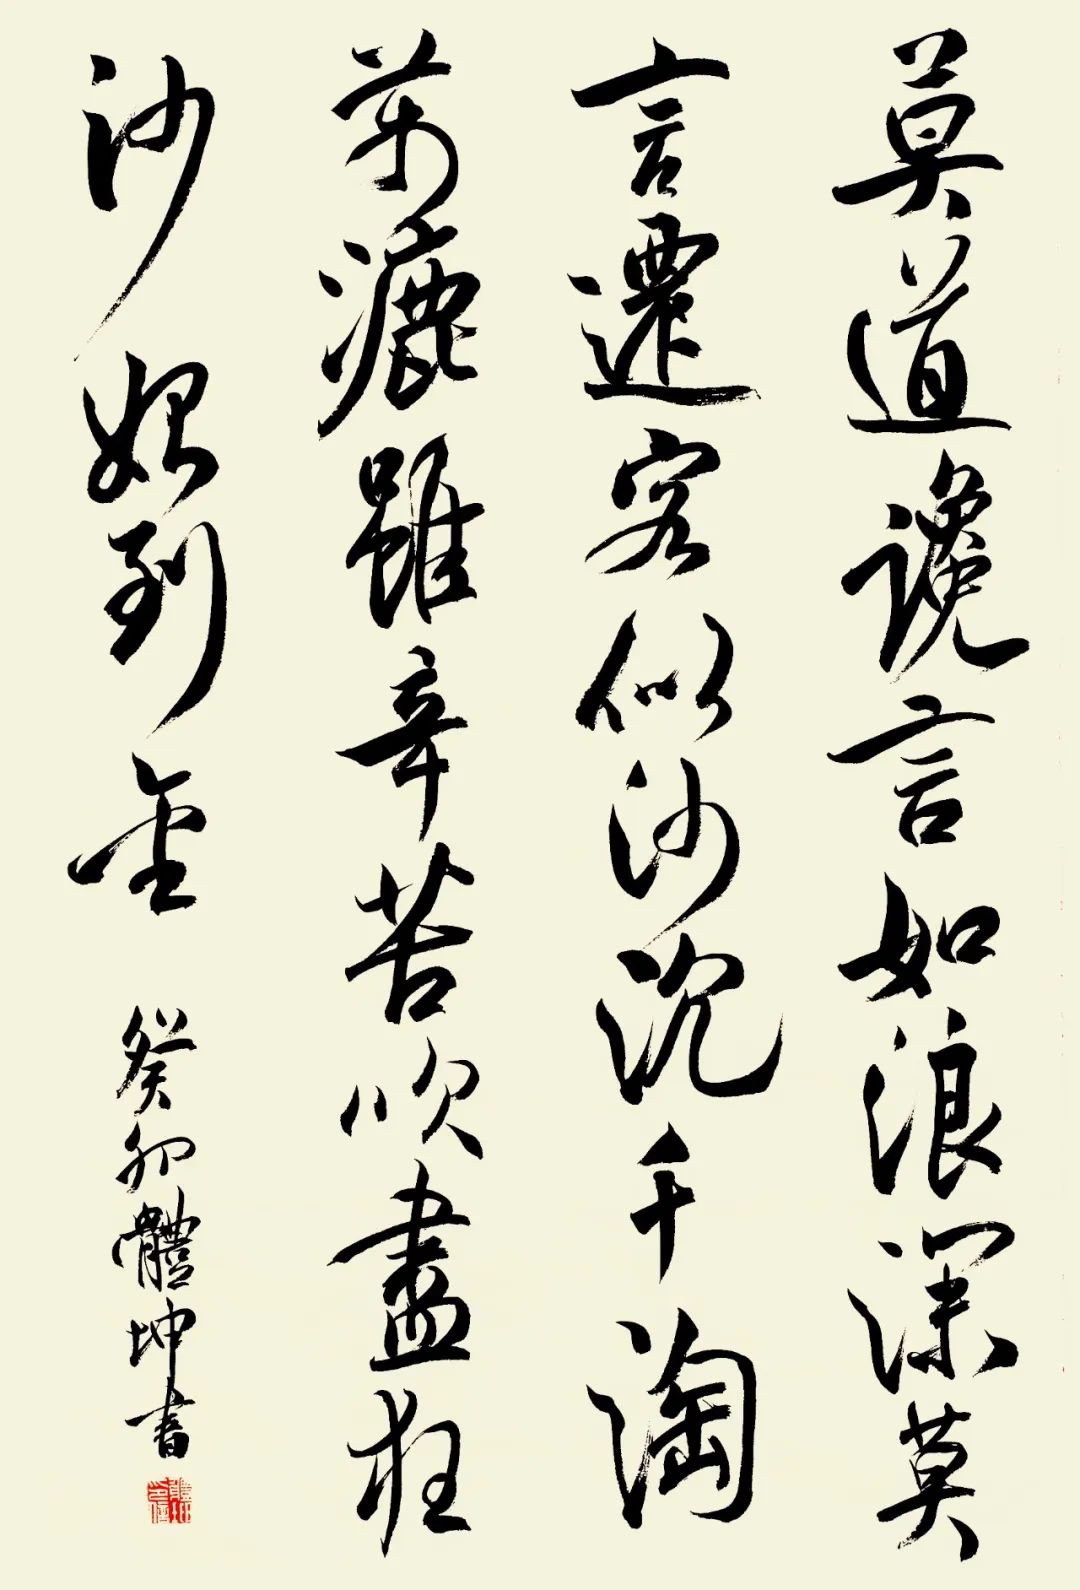 莫道讒言如浪深莫
言遷客似沙沉千淘
萬漉雖辛苦吹盡狂
沙始到金
癸卯體坤書